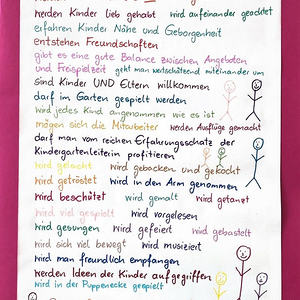 werden Kinder lieb gehabt wird aufeinander geachtet
erfahren Kinder Nähe und Geborgenheit
entstehen Freundschaften
gibt es eine gute Balance zwischen Angeboten
und Freispielzeit geht man wertschätzend miteinander um
sind Kinder UND Eltern willkommen
darf im Garten gespielt werden
wird jedes Kind angenommen wie es ist
mögen sich die Mitarbeiter werden Ausflüge gemacht
darf man vom reichen Erfahrungsschatz der
Kindergartenleiterin profitieren
wird gelacht wird gebacken und gekocht
wird getröstet wird in den Arm genommen
wird beschützt wird gemalt wird getanzt
wird viel gespielt wird vorgelesen
wird gesungen wird gefeiert wird gebastelt
wird sich viel bewegt wird musiziert
wird man freundlich empfangen
werden Ideen der Kinder aufgegriffen
wird in der Puppenecke gespielt